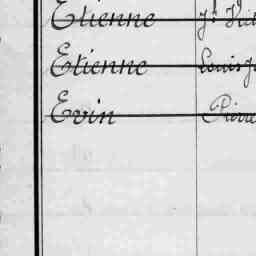 Etienne
Etienne Louis
Evin Pierre